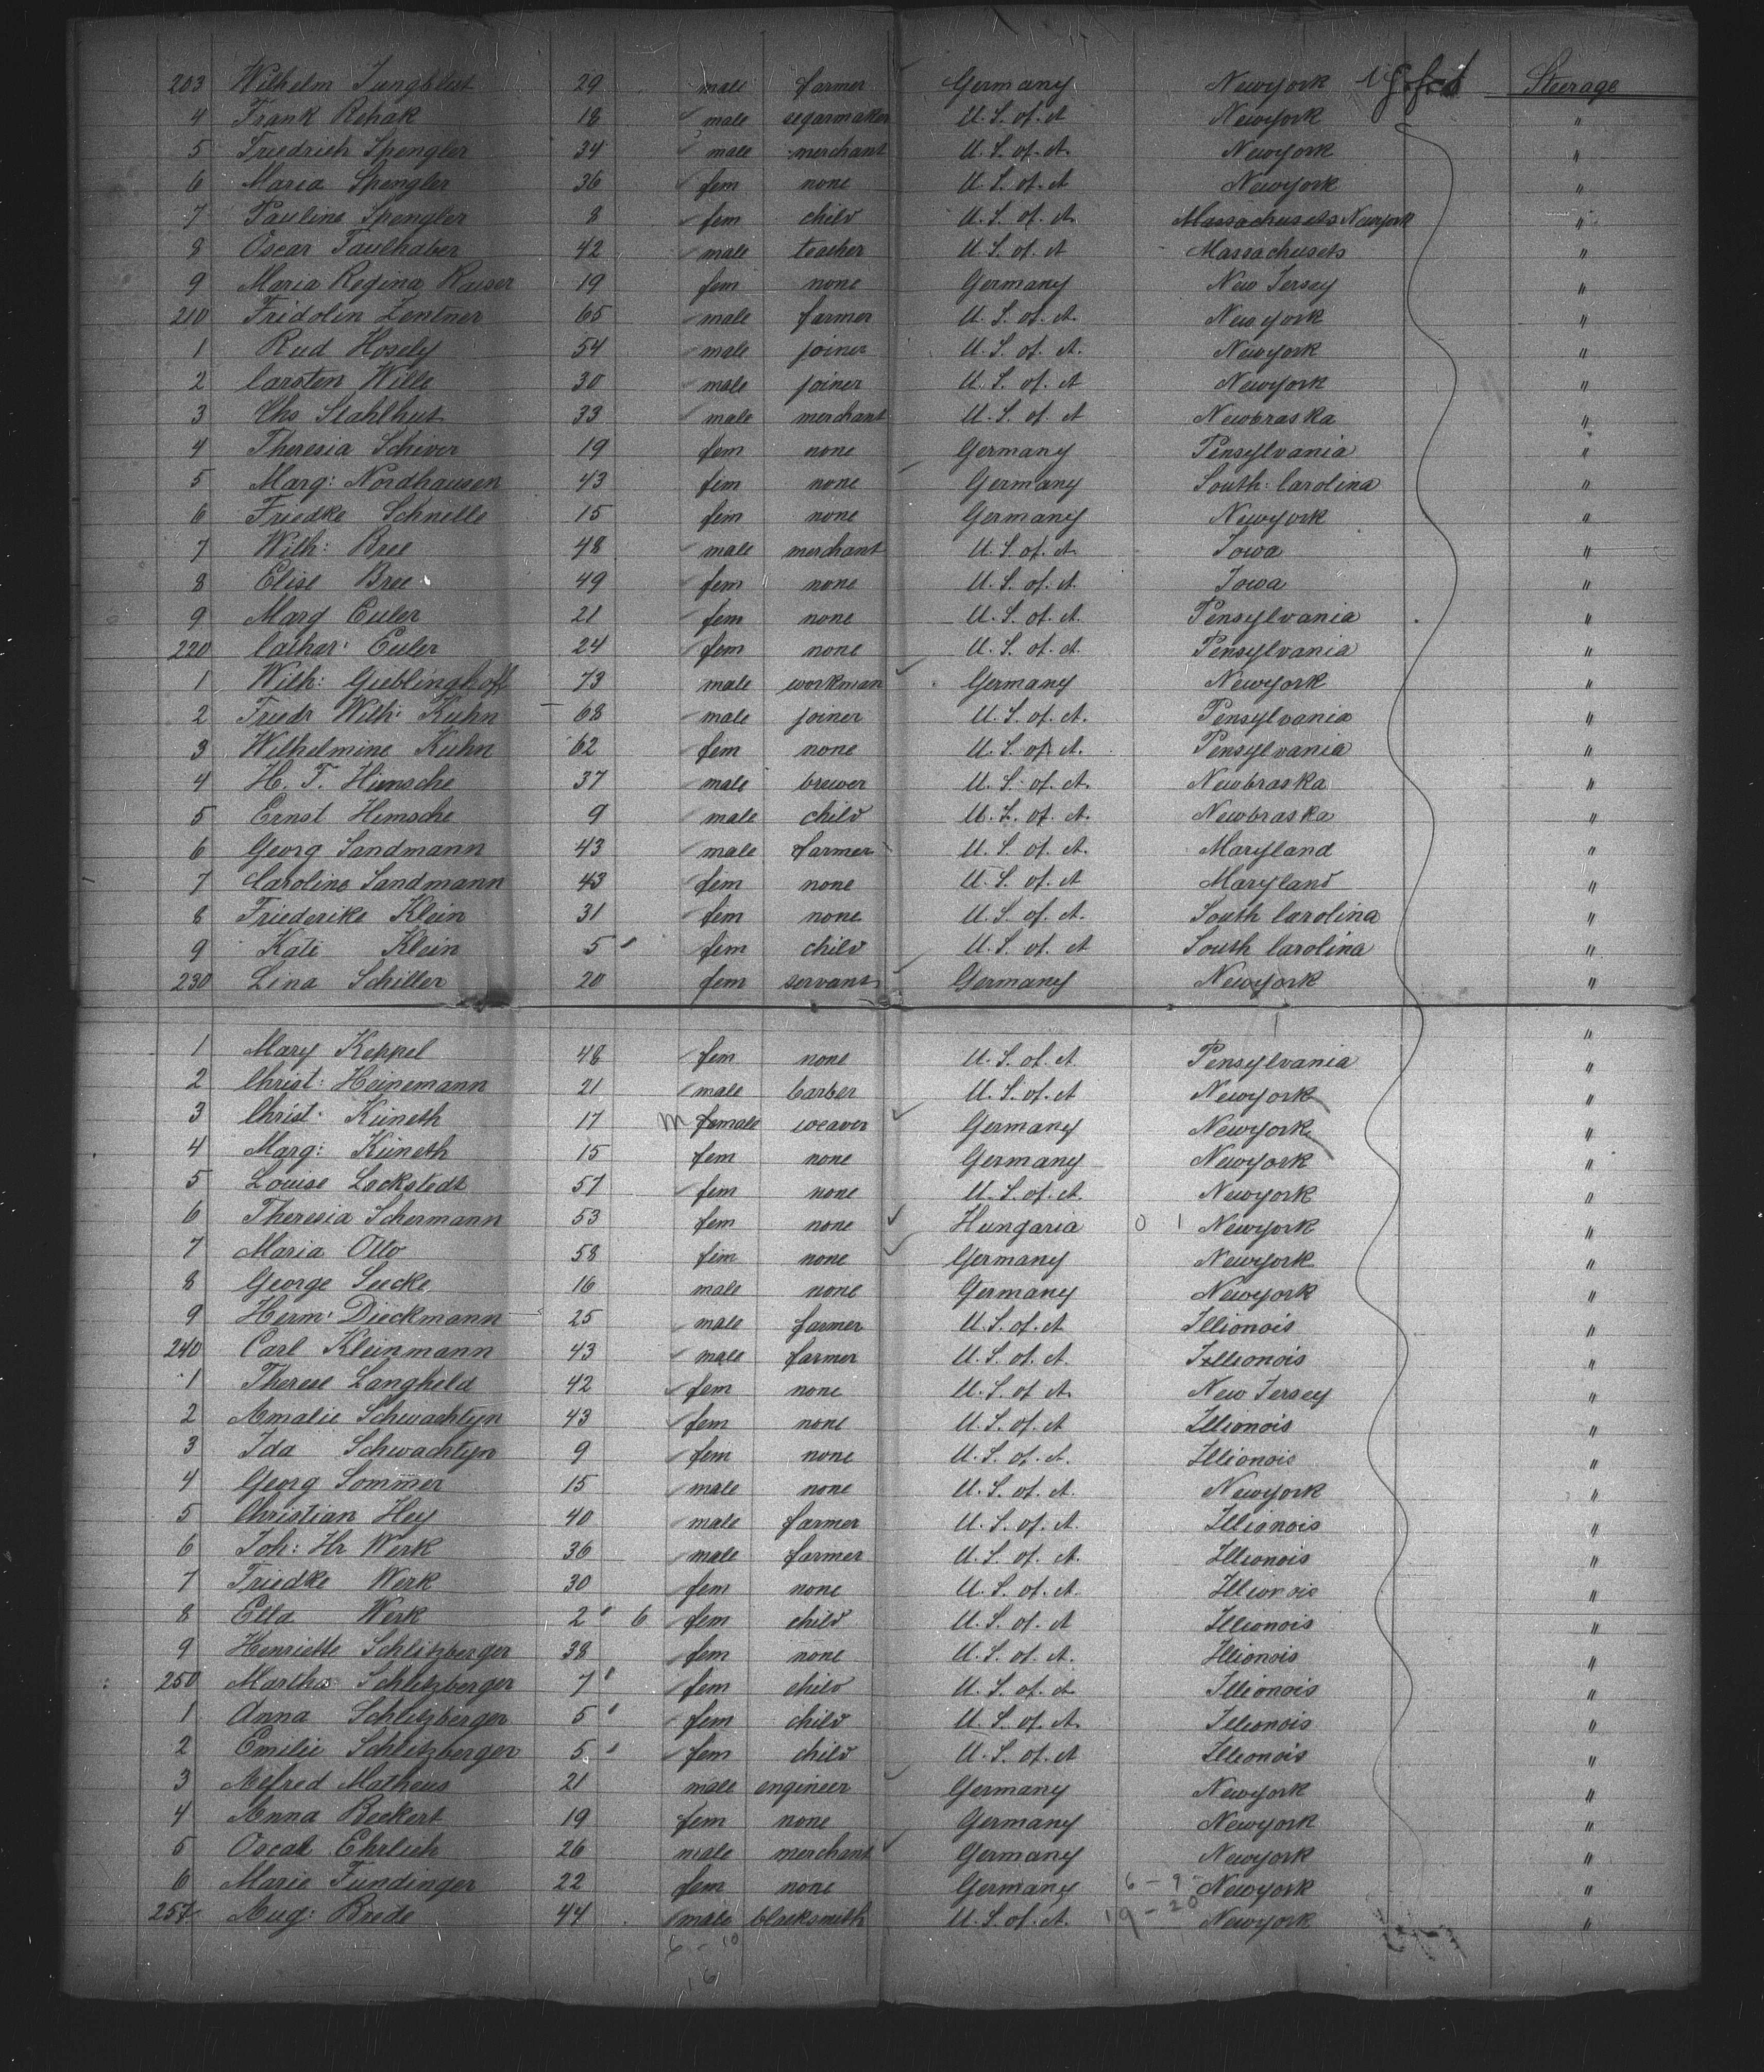 203 Wilhelm Jungblut 29 male farmer Germany Newyork Steerage
4 Frank Rehak 18 male segarmaker U. S. of. A Newyork "
5 Friedrich Spengler 34 male merchant U. S. of. A. Newyork "
6 Maria Spengler 36 fem none U. S. of. A Newyork "
7 Pauline Spengler 8 fem child U. S. of. A. Massachusets Newyork "
8 Oscar Faulhaber 42 male teacher U. S. of. A Massachusets "
9 Maria Regina Kaiser 19 fem none Germany New Jersey "
210 Fridolin Zentner 65 male farmer U. S. of. A. Newyork "
1 Rud Hosely 54 male joiner U. S. of. A. Newyork "
2 Carsten Wille 30 male joiner U. S. of. A Newyork "
3 Chs Stahlhut 33 male merchant U. S. of. A Newbraska "
4 Theresia Schiver 19 fem none Germany Pensylvania "
5 Marg: Nordhausen 43 fem none Germany South: Carolina "
6 Friedke Schnelle 15 fem none Germany Newyork "
7 Wilh: Bree 48 male merchant U. S. of. A Iowa "
8 Elise Bree 49 fem none U. S. of. A Iowa "
9 Marg Euler 21 fem none U. S. of. A Pensylvania "
220 Cathar: Euler 24 fem none U. S. of. A Pensylvania "
1 Wilh: Gieblinghoff 73 male workman Germany Newyork "
2 Friedr Wilh: Kuhn 68 male joiner U. S. of. A. Pensylvania "
3 Wilhelmine Kuhn 62 fem none U. S. of. A. Pensylvania "
4 H. F. Himsche 37 male brewer U. S. of. A. Newbraska "
5 Ernst Himsche 9 male child U. S. of. A. Newbraska "
6 Georg Sandmann 43 male farmer U. S. of. A. Maryland "
7 Caroline Sandmann 43 fem none U. S. of. A Maryland "
8 Friederike Klein 31 fem none U. S. of. A. South Carolina "
9 Kate Klein 5 fem child U. S. of. A South Carolina "
230 Lina Schiller 20 fem servant Germany Newyork "
"
1 Mary Keppel 48 fem none U. S. of. A Pensylvania "
2 Christ: Heinemann 21 male barber U. S. of. A Newyork "
3 Christ: Küneth 17 m female weaver Germany Newyork "
4 Marg: Küneth 15 fem none Germany Newyork "
5 Louise Lockstedt 51 fem none U. S. of. A. Newyork "
6 Theresia Schermann 53 fem none Hungaria 0 1 Newyork "
7 Maria Otto 58 fem none Germany Newyork "
8 George Seecke 16 male none Germany Newyork "
9 Herm: Dieckmann 25 male farmer U. S. of. A Illionois "
240 Carl Kleinmann 43 male farmer U. S. of. A. Illionois "
1 Therese Langheld 42 fem none U. S. of A. New Jersey "
2 Amalie Schwachtyn 43 fem none U. S. of. A Illionois "
3 Ida Schwachtyn 9 fem none U. S. of. A. Illionois "
4 Georg Sommer 15 male none U. S. of. A. Newyork "
5 Christian Hey 40 male farmer U. S. of. A. Illionois "
6 Joh: Hr Werk 36 male farmer U. S. of. A. Illionois "
7 Friedke Werk 30 fem none U. S. of. A. Illionois "
8 Etta Werk 2 6 fem child U. S. of. A Illionois "
9 Henriette Schlitzberger 38 fem none U. S. of. A. Illionois "
250 Martha Schlitzberger 7 fem child U. S. of. A Illionois "
1 Anna Schlitzberger 5 fem child U. S. of. A. Illionois "
2 Emilie Schlitzberger 5 fem child U. S. of. A Illionois "
3 Alfred Matheus 21 male engineer Germany Newyork "
4 Anna Beckert 19 fem none Germany Newyork "
5 Oscar Ehrlich 26 male merchant Germany Newyork "
6 Marie Fundinger 22 fem none Germany 6 - 9 Newyork "
257 Aug: Brede 44 male blacksmith U. S. of. A. 19 - 20 Newyork "
6 - 10
16